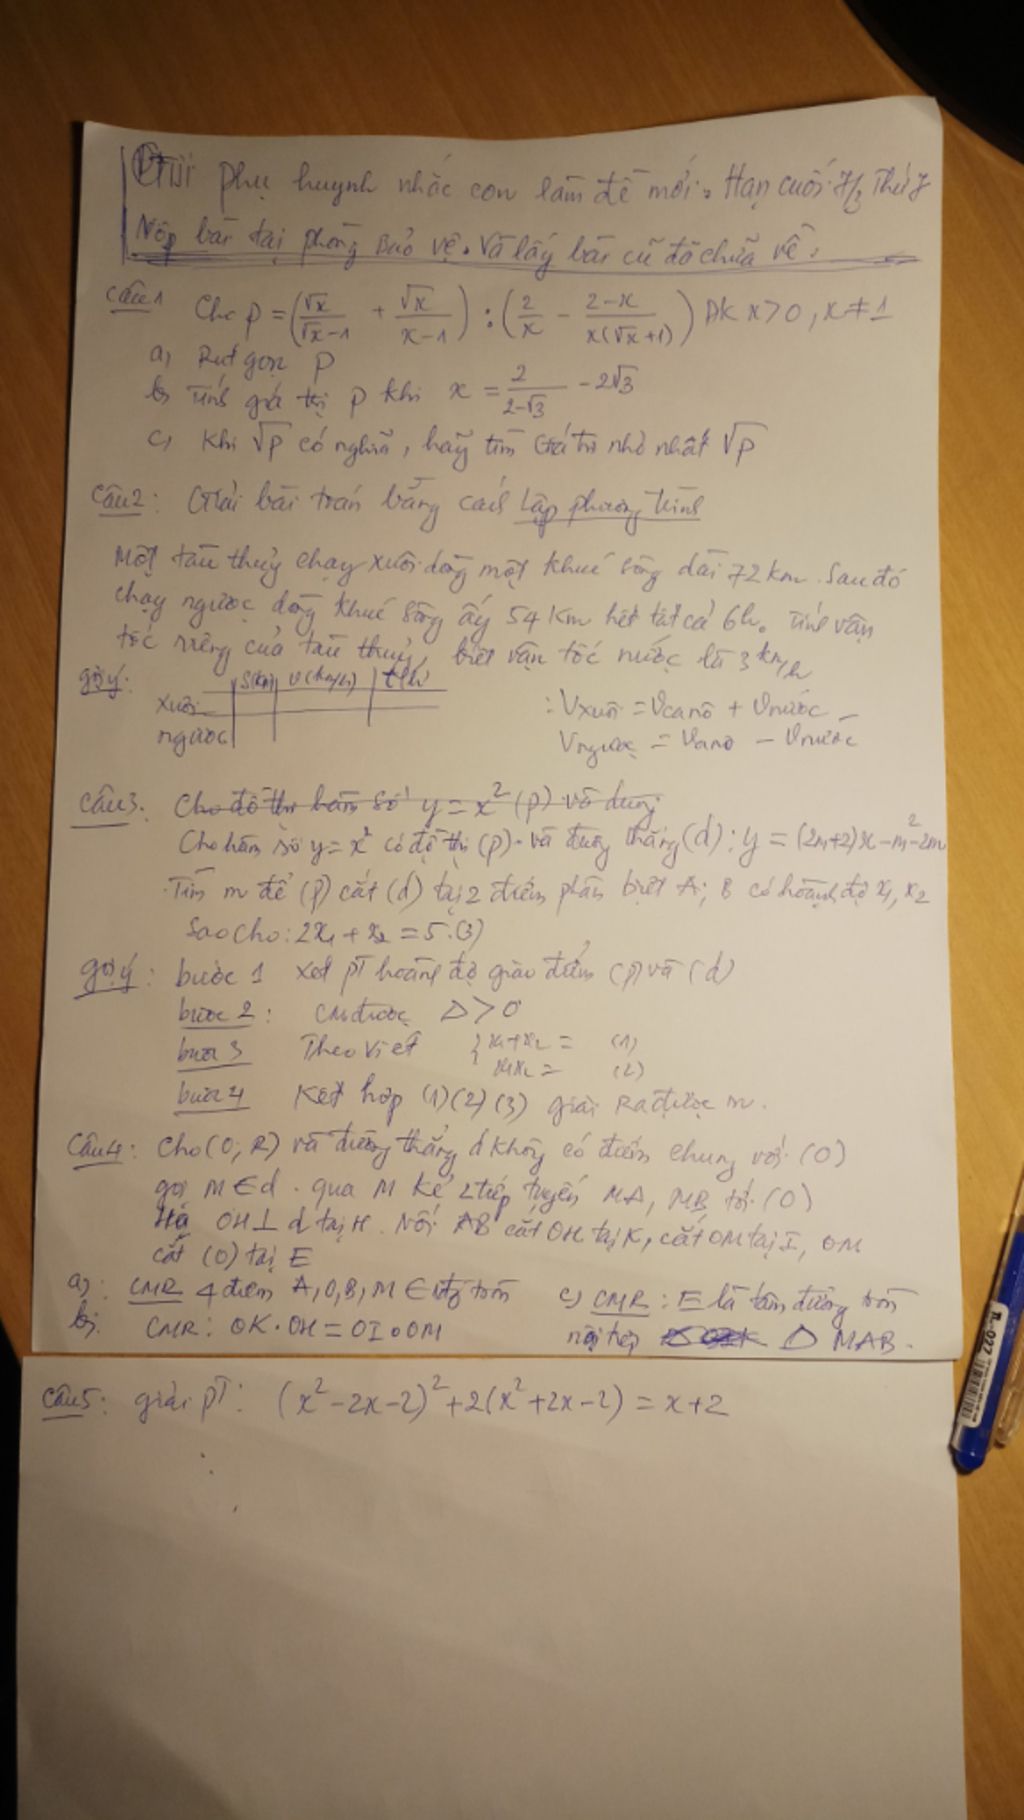 Gửi phụ huynh nhắc con làm đề mới. Hạn cuối 7/3 Thứ 7
Nộp bài tại phòng Bảo vệ. Và lấy bài cũ đã chữa về.
Câu 1 Cho P = (√x/(√x-1) + √x/(x-1)) : (2/x - (2-x)/(x(√x+1))) ĐK x>0, x≠1
a) Rút gọn P
b) Tính giá trị P khi x = 2/(2-√3) - 2√3
c) Khi √P có nghĩa, hãy tìm Giá trị nhỏ nhất √P
Câu 2: Giải bài toán bằng cách Lập phương trình
Một tàu thuỷ chạy xuôi dòng một khúc sông dài 72 km. Sau đó
chạy ngược dòng khúc sông ấy 54 Km hết tất cả 6h. Tính vận
tốc riêng của tàu thuỷ, biết vận tốc nước là 3 km/h
gợi ý: S(km) v(km/h) t(h)
xuôi : Vxuôi = Vcanô + Vnước
ngược Vngược = Vcanô - Vnước
Câu 3. Cho đồ thị hàm số y = x² (P) và đường
Cho hàm số y = x² có đồ thị (P). Và đường thẳng (d): y = (2m+2)x - m² - 2m
Tìm m để (P) cắt (d) tại 2 điểm phân biệt A; B có hoành độ x₁, x₂
Sao cho: 2x₁ + x₂ = 5. (3)
gợi ý: bước 1 xét pT hoành độ giao điểm (P) và (d)
bước 2: CM được Δ > 0
bước 3 Theo Viet { x₁+x₂ = (1)
x₁x₂ = (2)
bước 4 Kết hợp (1)(2)(3) giải Ra được m.
Câu 4: Cho (O; R) và đường thẳng d không có điểm chung với (O)
gọi M ∈ d. qua M Kẻ 2 tiếp tuyến MA, MB tới (O)
Hạ OH ⊥ d tại H. Nối AB cắt OH tại K, cắt OM tại I, OM
cắt (O) tại E
a): CMR 4 điểm A, O, B, M ∈ đg tròn c) CMR: E là tâm đường tròn
b). CMR: OK.OH = OI.OM nội tiếp Δ MAB.
Câu 5: giải pT: (x²-2x-2)² + 2(x²+2x-2) = x+2
n.-027